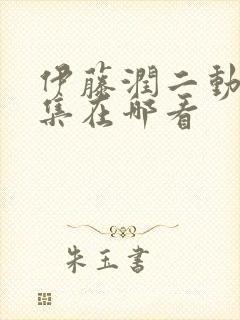 伊藤潤二動
集在哪看
朱玉書